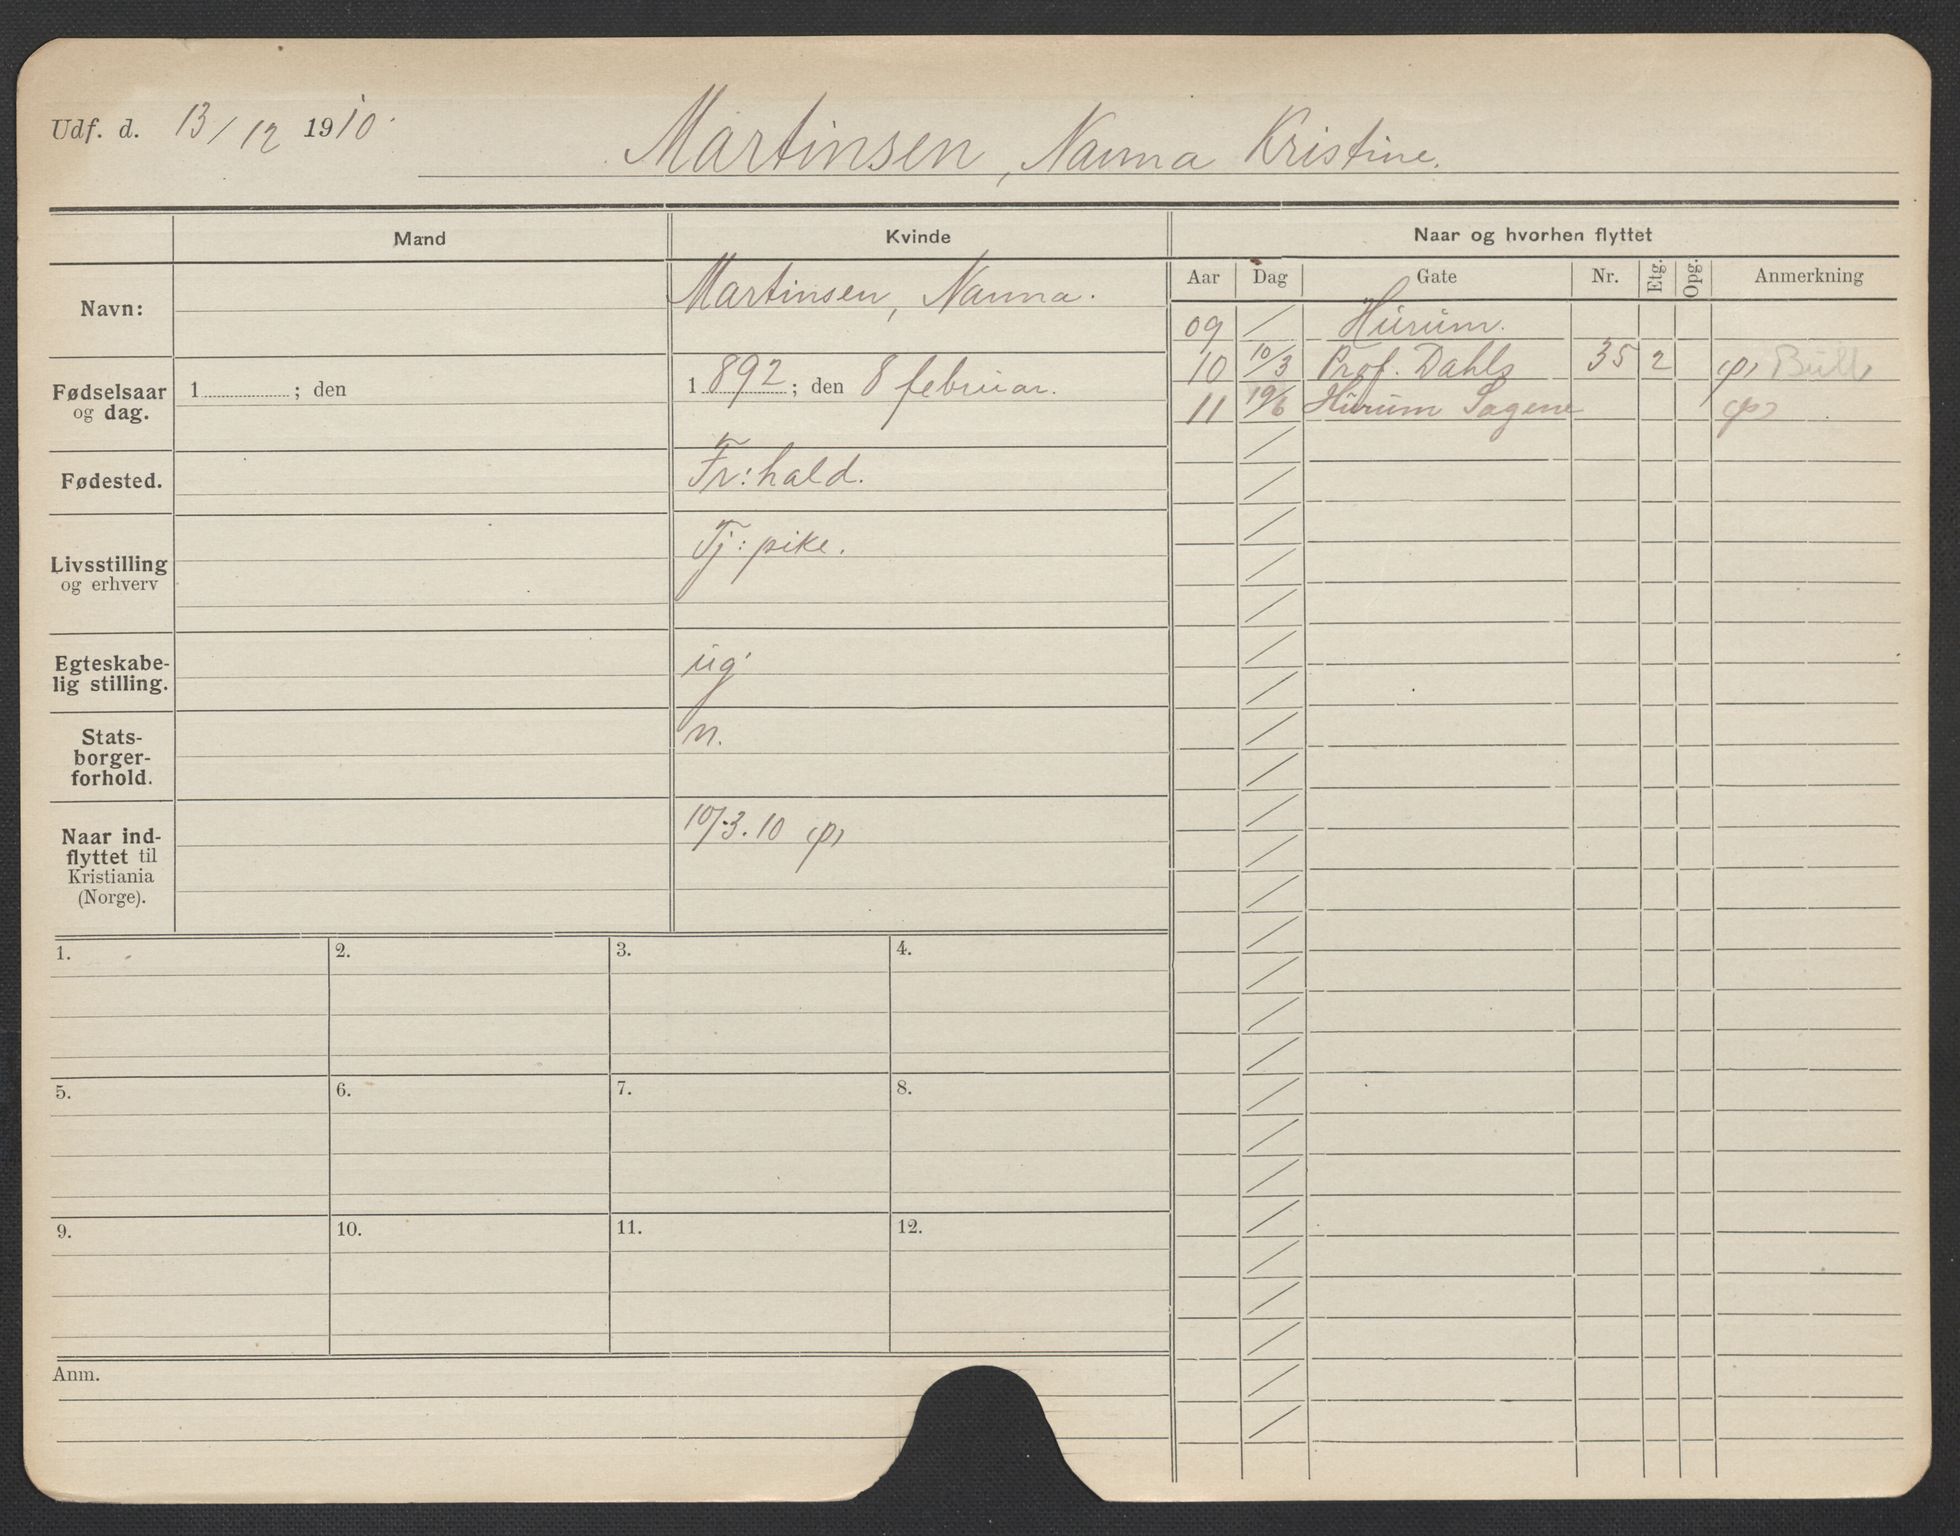 Udf. d. 13/12 1910.
Martinsen, Nanna Kristine.
Mand
Kvinde
Naar og hvorhen flyttet
Navn:
Martinsen, Nanna.
Fødselsaar
og dag.
1 ; den
1892; den 8 februar.
Fødested.
Fr:hald.
Livsstilling
og erhverv
Tj: pike.
Egteskabe-
lig stilling.
ug.
Stats-
borger-
forhold.
n.
Naar ind-
flyttet til
Kristiania
(Norge).
10/-3.10 (p)
Aar Dag Gate Nr. Etg. Opg. Anmerkning
09 / Hurum.
10 10/3 Prof. Dahls 35 2 (p) Bull
11 /6 Hurum Sagene (p)
1. 2. 3. 4.
5. 6. 7. 8.
9. 10. 11. 12.
Anm.